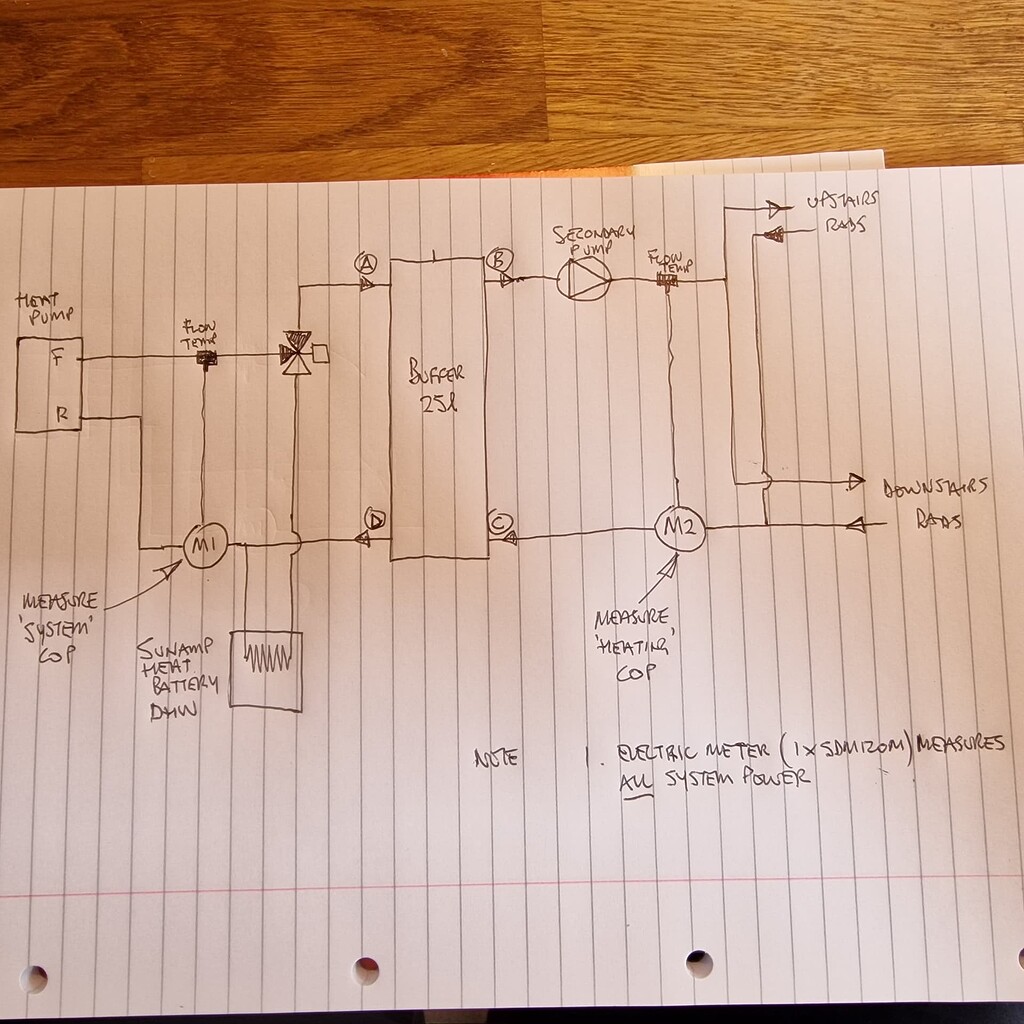 HEAT
PUMP
F
R
FLOW
TEMP
A
B
C
D
BUFFER
25l
SECONDARY
PUMP
FLOW
TEMP
UPSTAIRS
RADS
DOWNSTAIRS
RADS
M1
M2
MEASURE
'SYSTEM'
COP
SUNAMP
HEAT
BATTERY
DHW
MEASURE
'HEATING'
COP
NOTE 1. ELECTRIC METER (1 x SDM120M) MEASURES
ALL SYSTEM POWER